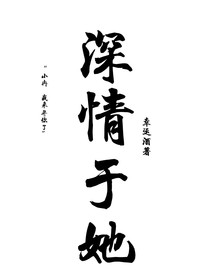 深情于她
幸运酒著
“小冉 我来年你了”